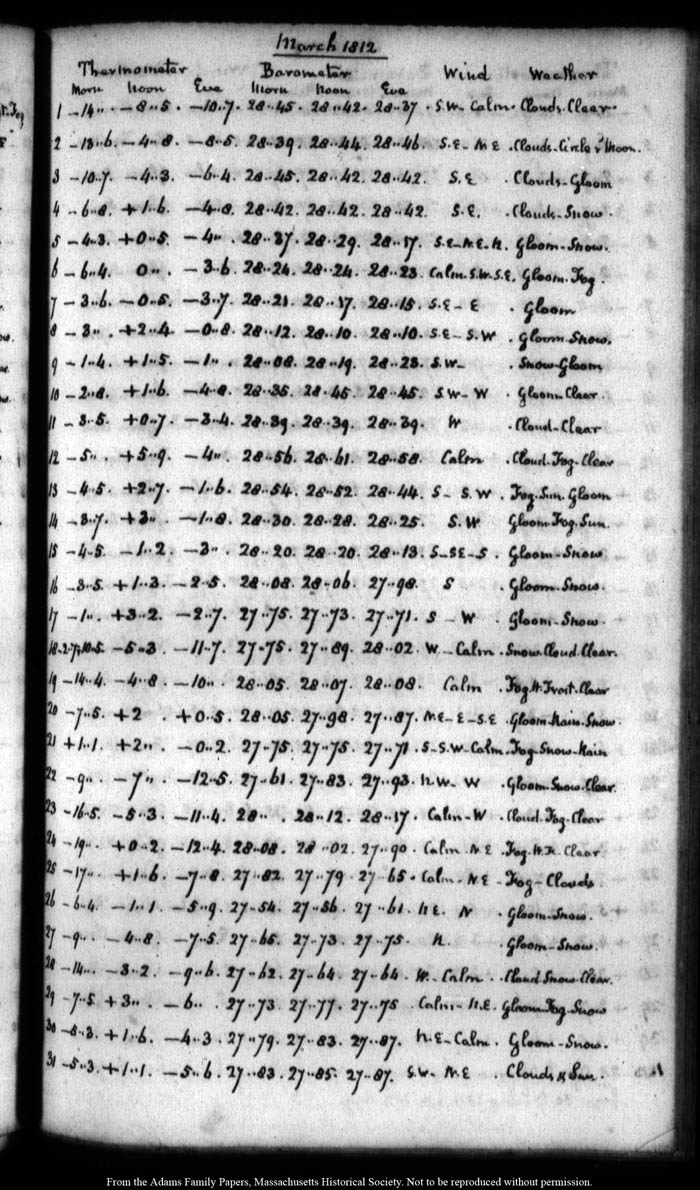 March 1812
Thermometer Barometer Wind Weather
Morn Noon Eve Morn Noon Eve
1 –14.. –8..5. –10..7. 28..45. 28..42. 28..37. S.W– Calm. Clouds. Clear.
2 –13..6. –4..8. –8..5. 28..39. 28..44. 28..46. S.E– N E. Clouds–Circle r Moon.
3 –10..7. –4..3. –6..4. 28..45. 28..42. 28..42. S.E. Clouds–Gloom
4 –6..8. +1..6. –4..8. 28..42. 28..42. 28..42. S.E. Clouds–Snow.
5 –4..3. +0..5. –4.. 28..37. 28..29. 28..17. S.E–N.E.N. Gloom–Snow.
6 –6..4. 0.. –3..6. 28..24. 28..24. 28..23. Calm. S.W. S.E. Gloom. Fog.
7 –3..6. –0..5. –3..7. 28..21. 28..17. 28..15. S.E–E. Gloom
8 –3.. +2..4. –0..8. 28..12. 28..10. 28..10. S.E–S.W. Gloom–Snow.
9 –1..4. +1..5. –1.. 28..08. 28..19. 28..23. S.W–. Snow–Gloom
10 –2..8. +1..6. –4..8. 28..35. 28..45. 28..45. S.W–W. Gloom–Clear.
11 –3..5. +0..7. –3..4. 28..39. 28..39. 28..39. W. Cloud–Clear
12 –5.. +5..9. –4.. 28..56. 28..61. 28..58. Calm. Cloud. Fog–Clear
13 –4..5. +2..7. –1..6. 28..54. 28..52. 28..44. S–S.W. Fog. Sun. Gloom
14 –3..7. +3.. –1..8. 28..30. 28..28. 28..25. S.W Gloom. Fog. Sun.
15 –4..5. –1..2. –3.. 28..20. 28..20. 28..13. S–SE–S. Gloom–Snow
16 –3..5 +1..3. –2..5. 28..08. 28..06. 27..98. S. Gloom–Snow.
17 –1.. +3..2. –2..7. 27..75. 27..73. 27..71. S–W. Gloom–Snow.
18 –2..7; 10..5. –5..3. –11..7. 27..75. 27..89. 28..02. W–Calm. Snow. Cloud. Clear.
19 –14..4. –4..8. –10.. 28..05. 28..07. 28..08. Calm. Fog. H. Frost. Clear
20 –7..5. +2. +0..5. 28..05. 27..98. 27..87. N.E–E–S.E. Gloom–Rain–Snow.
21 +1..1. +2.. –0..2. 27..75. 27..75. 27..71. S–S.W–Calm. Fog–Snow–Rain
22 –9.. –7.. –12..5. 27..61. 27..83. 27..93. N.W–W. Gloom–Snow–Clear.
23 –16..5. –5..3. –11..4. 28.. 28..12. 28..17. Calm–W. Cloud. Fog–Clear
24 –19.. +0..2. –12..4. 28..08. 28..02. 27..90. Calm. N.E. Fog. Clear.
25 –17.. +1..6. –7..8. 27..82. 27..79. 27..65. Calm–N.E– Fog–Clouds
26 –6..4. –1..1. –5..9. 27..54. 27..56. 27..61. N.E. N. Gloom–Snow.
27 –9.. –4..8. –7..5. 27..65. 27..73. 27..75. N. Gloom–Snow.
28 –14.. –3..2. –9..6. 27..62. 27..64. 27..64. W–Calm. Cloud Snow. Clear.
29 –7..5 +3.. –6.. 27..73. 27..77. 27..75. Calm–N.E. Gloom–Fog. Snow
30 –5..3. +1..6. –4..3. 27..79. 27..83. 27..87. N.E–Calm. Gloom–Snow.
31 –5..3. +1..1. –5..6. 27..83. 27..85. 27..87. S.W– N.E Clouds & Sun.
From the Adams Family Papers, Massachusetts Historical Society. Not to be reproduced without permission.